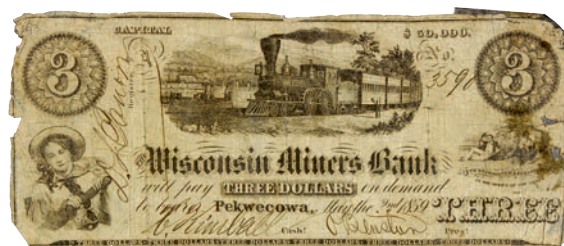 CAPITAL $ 50,000.
3 No. 3590 3
Register
Wisconsin Miners Bank
will pay THREE DOLLARS on demand
to bearer Pekwecowa, May the 2nd 1859 THREE
Kimball Cash! Johnston Pres!
THREE DOLLARS THREE DOLLARS THREE DOLLARS THREE DOLLARS THREE DOLLARS THREE DOLLARS